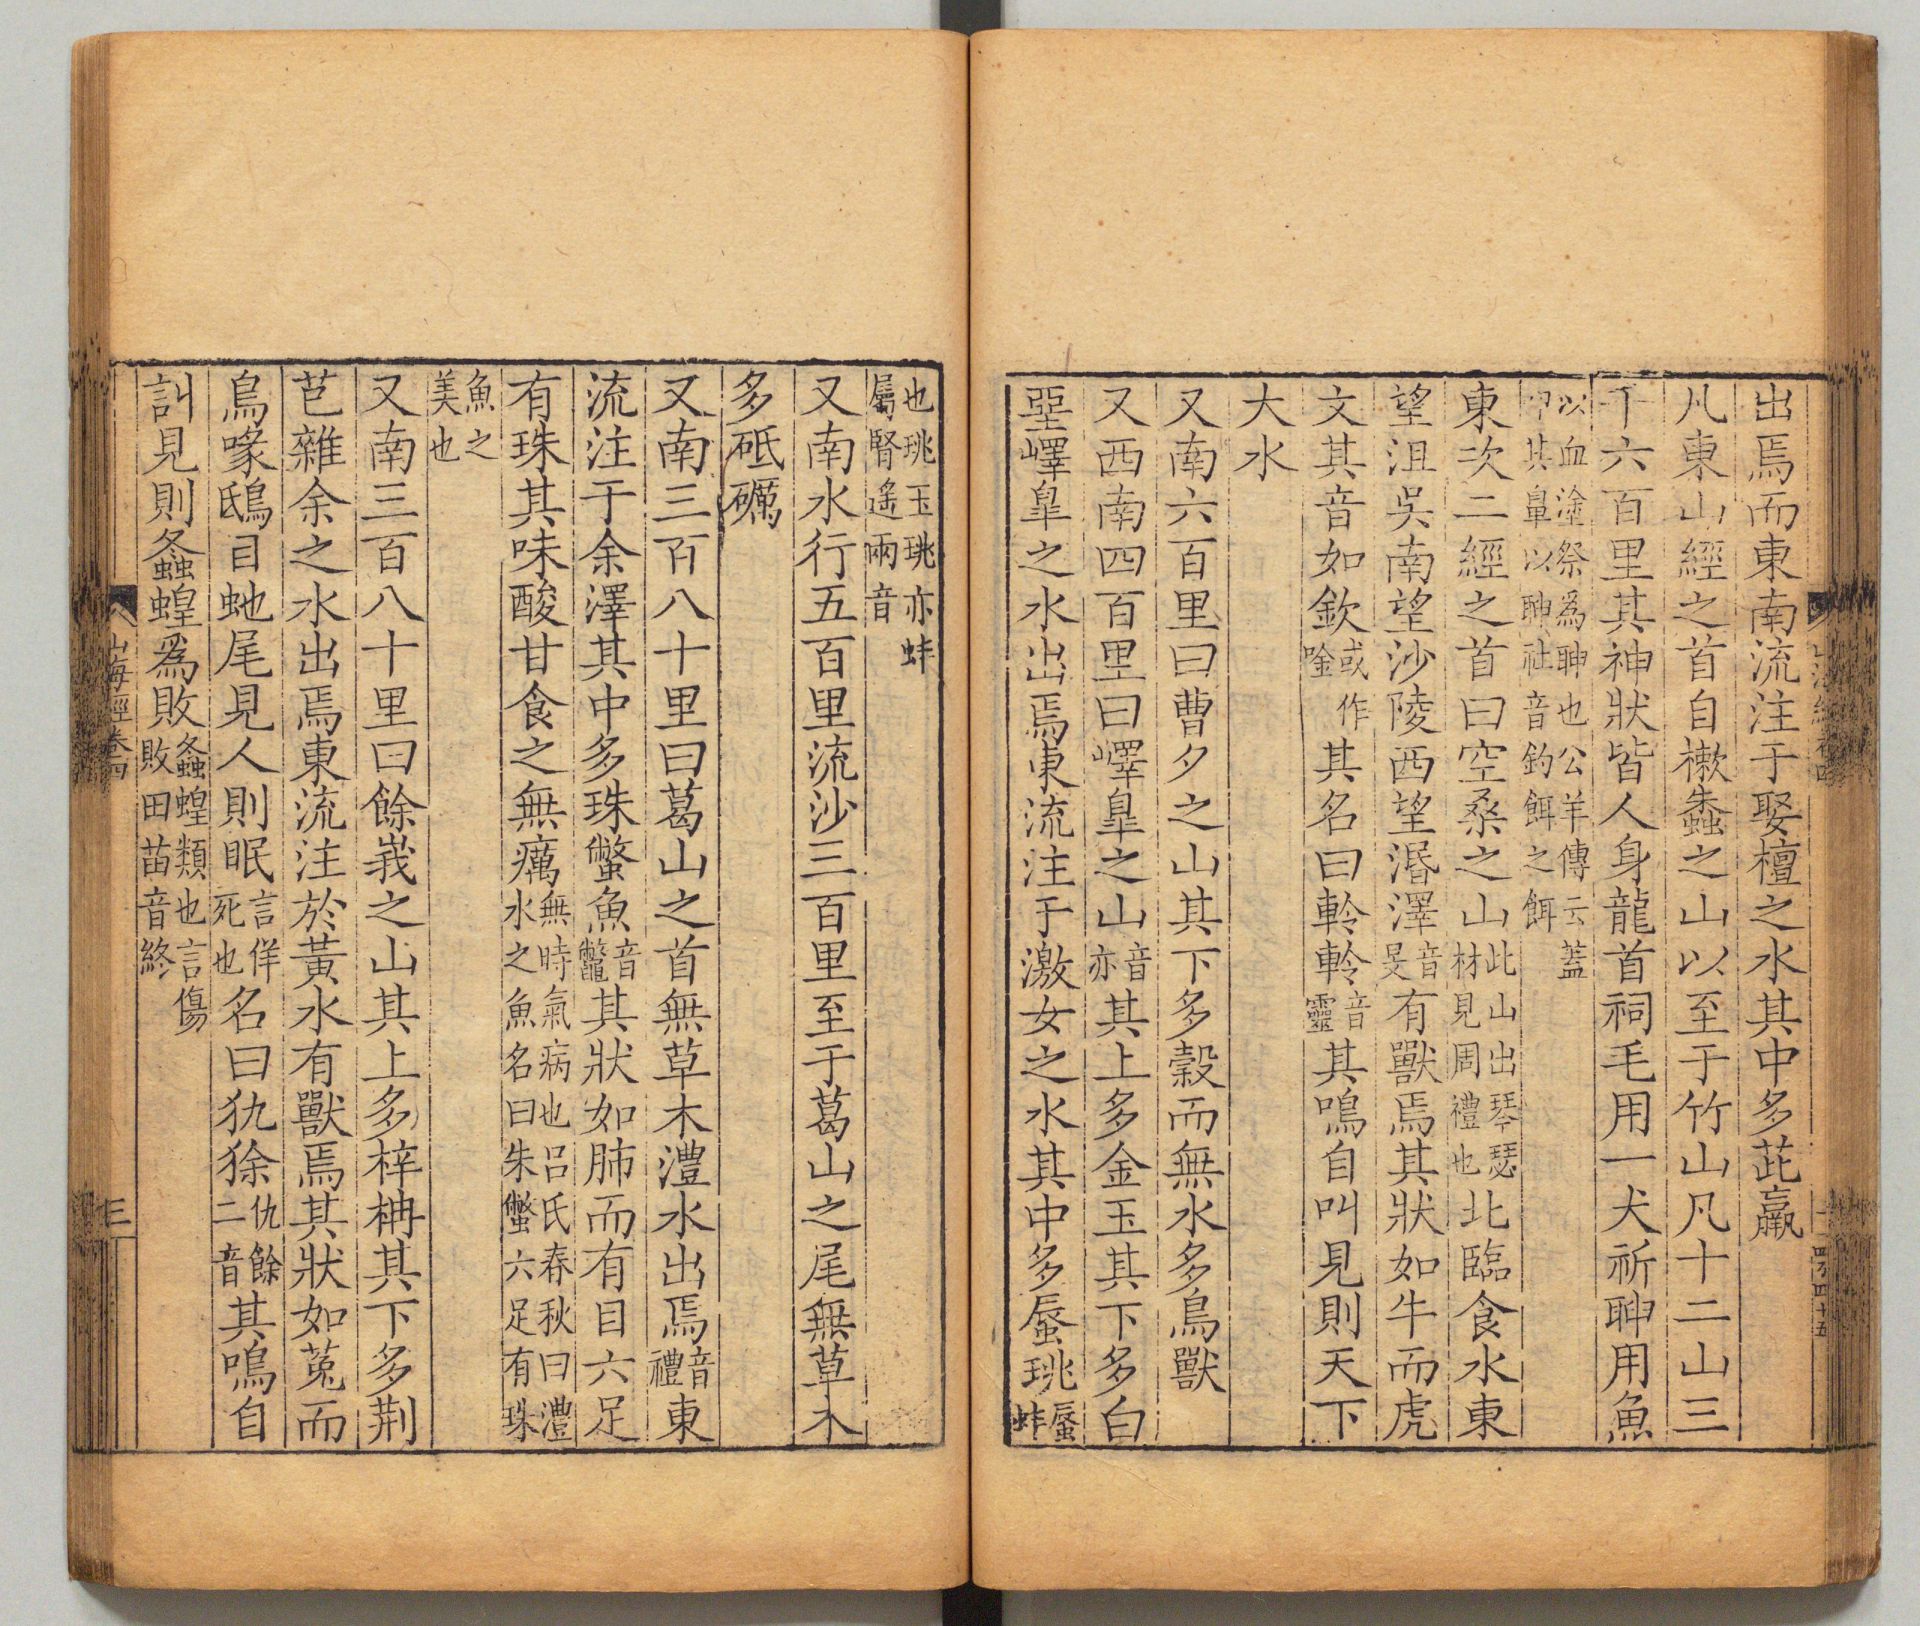 出焉而東南流注于娶檀之水其中多茈蠃
凡東山經之首自樕䘃之山以至于竹山凡十二山三
千六百里其神狀皆人身龍首祠毛用一犬祈聊用魚
以血塗祭爲聊也公羊傳云蓋
叩其鼻以聊社音釣餌之餌
東次二經之首曰空桑之山此山出琴瑟材見周禮也北臨食水東
望沮吳南望沙陵西望湣澤音旻有獸焉其狀如牛而虎
文其音如欽或作唫其名曰軨軨音靈其鳴自叫見則天下
大水
又南六百里曰曹夕之山其下多榖而無水多鳥獸
又西南四百里曰嶧皐之山音亦其上多金玉其下多白
堊嶧皐之水出焉東流注于激女之水其中多蜃珧蜃蚌
也珧玉珧亦蚌
屬腎遙兩音
又南水行五百里流沙三百里至于葛山之尾無草木
多砥礪
又南三百八十里曰葛山之首無草木澧水出焉音禮東
流注于余澤其中多珠蟞魚音鼈其狀如肺而有目六足
有珠其味酸甘食之無癘無時氣病也呂氏春秋曰澧水之魚名曰朱蟞六足有珠
魚之
美也
又南三百八十里曰餘峩之山其上多梓柟其下多荆
芑雜余之水出焉東流注於黃水有獸焉其狀如菟而
鳥喙鴟目虵尾見人則眠言佯死也名曰犰狳仇餘二音其鳴自
訆見則螽蝗爲敗螽蝗類也言傷敗田苗音終
山海經卷四
三